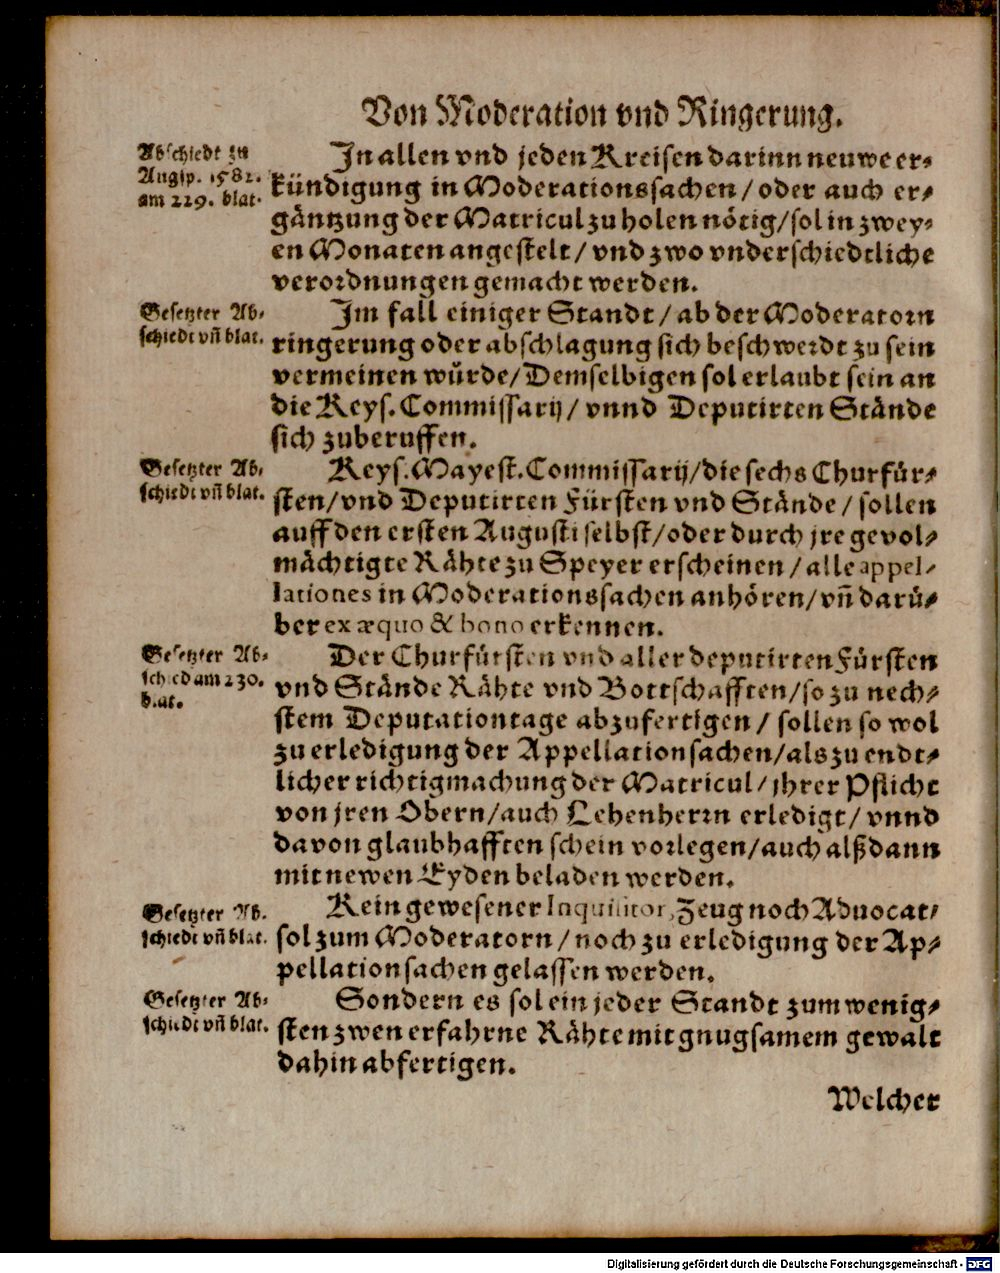 Von Moderation vnd Ringerung.
Abschiedt zu
Augsp. 1582.
am 229. blat.
In allen vnd jeden Kreisen darinn neuwe er-
kündigung in Moderationssachen / oder auch er-
gäntzung der Matricul zu holen nötig / sol in zwey-
en Monaten angestelt / vnd zwo vnderschiedtliche
verordnungen gemacht werden.
Gesetzter Ab-
schiedt vñ blat.
Im fall einiger Standt / ab der Moderatorn
ringerung oder abschlagung sich beschwerdt zu sein
vermeinen würde / Demselbigen sol erlaubt sein an
die Keys. Commissarij / vnnd Deputirten Stände
sich zuberuffen.
Gesetzter Ab-
schiedt vñ blat.
Keys. Mayest. Commissarij / die sechs Churfür-
sten / vnd Deputirten Fürsten vnd Stände / sollen
auff den ersten Augusti selbst / oder durch jre gevol-
mächtigte Rähte zu Speyer erscheinen / alle appel-
lationes in Moderationssachen anhören / vñ darü-
ber ex æquo & bono erkennen.
Gesetzter Ab-
schied am 230.
blat.
Der Churfürsten vnd aller deputirten Fürsten
vnd Stände Rähte vnd Bottschafften / so zu nech-
stem Deputationtage abzufertigen / sollen so wol
zu erledigung der Appellationsachen / als zu endt-
licher richtigmachung der Matricul / jhrer Pflicht
von jren Obern / auch Lehenherrn erledigt / vnnd
davon glaubhafften schein vorlegen / auch alßdann
mit newen Eyden beladen werden.
Gesetzter Ab-
schiedt vñ blat.
Kein gewesener Inquisitor, Zeug noch Aduocat /
sol zum Moderatorn / noch zu erledigung der Ap-
pellationsachen gelassen werden.
Gesetzter Ab-
schiedt vñ blat.
Sondern es sol ein jeder Standt zum wenig-
sten zwen erfahrne Rähte mit gnugsamem gewalt
dahin abfertigen.
Welcher
Digitalisierung gefördert durch die Deutsche Forschungsgemeinschaft - DFG